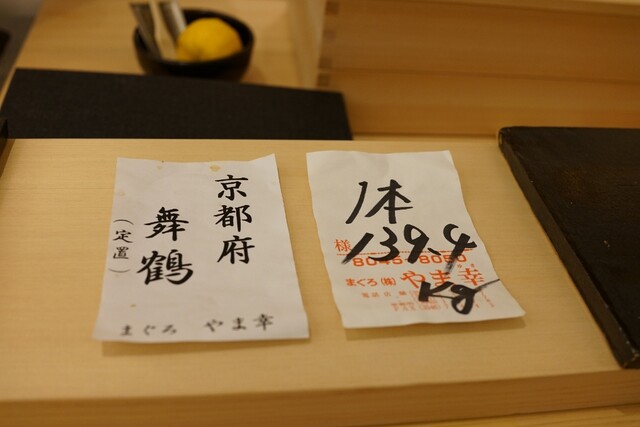 京都府
舞鶴
（定置）
まぐろ やま幸
1本
139.4
kg
様
8045-8050
まぐろ(株)やま幸